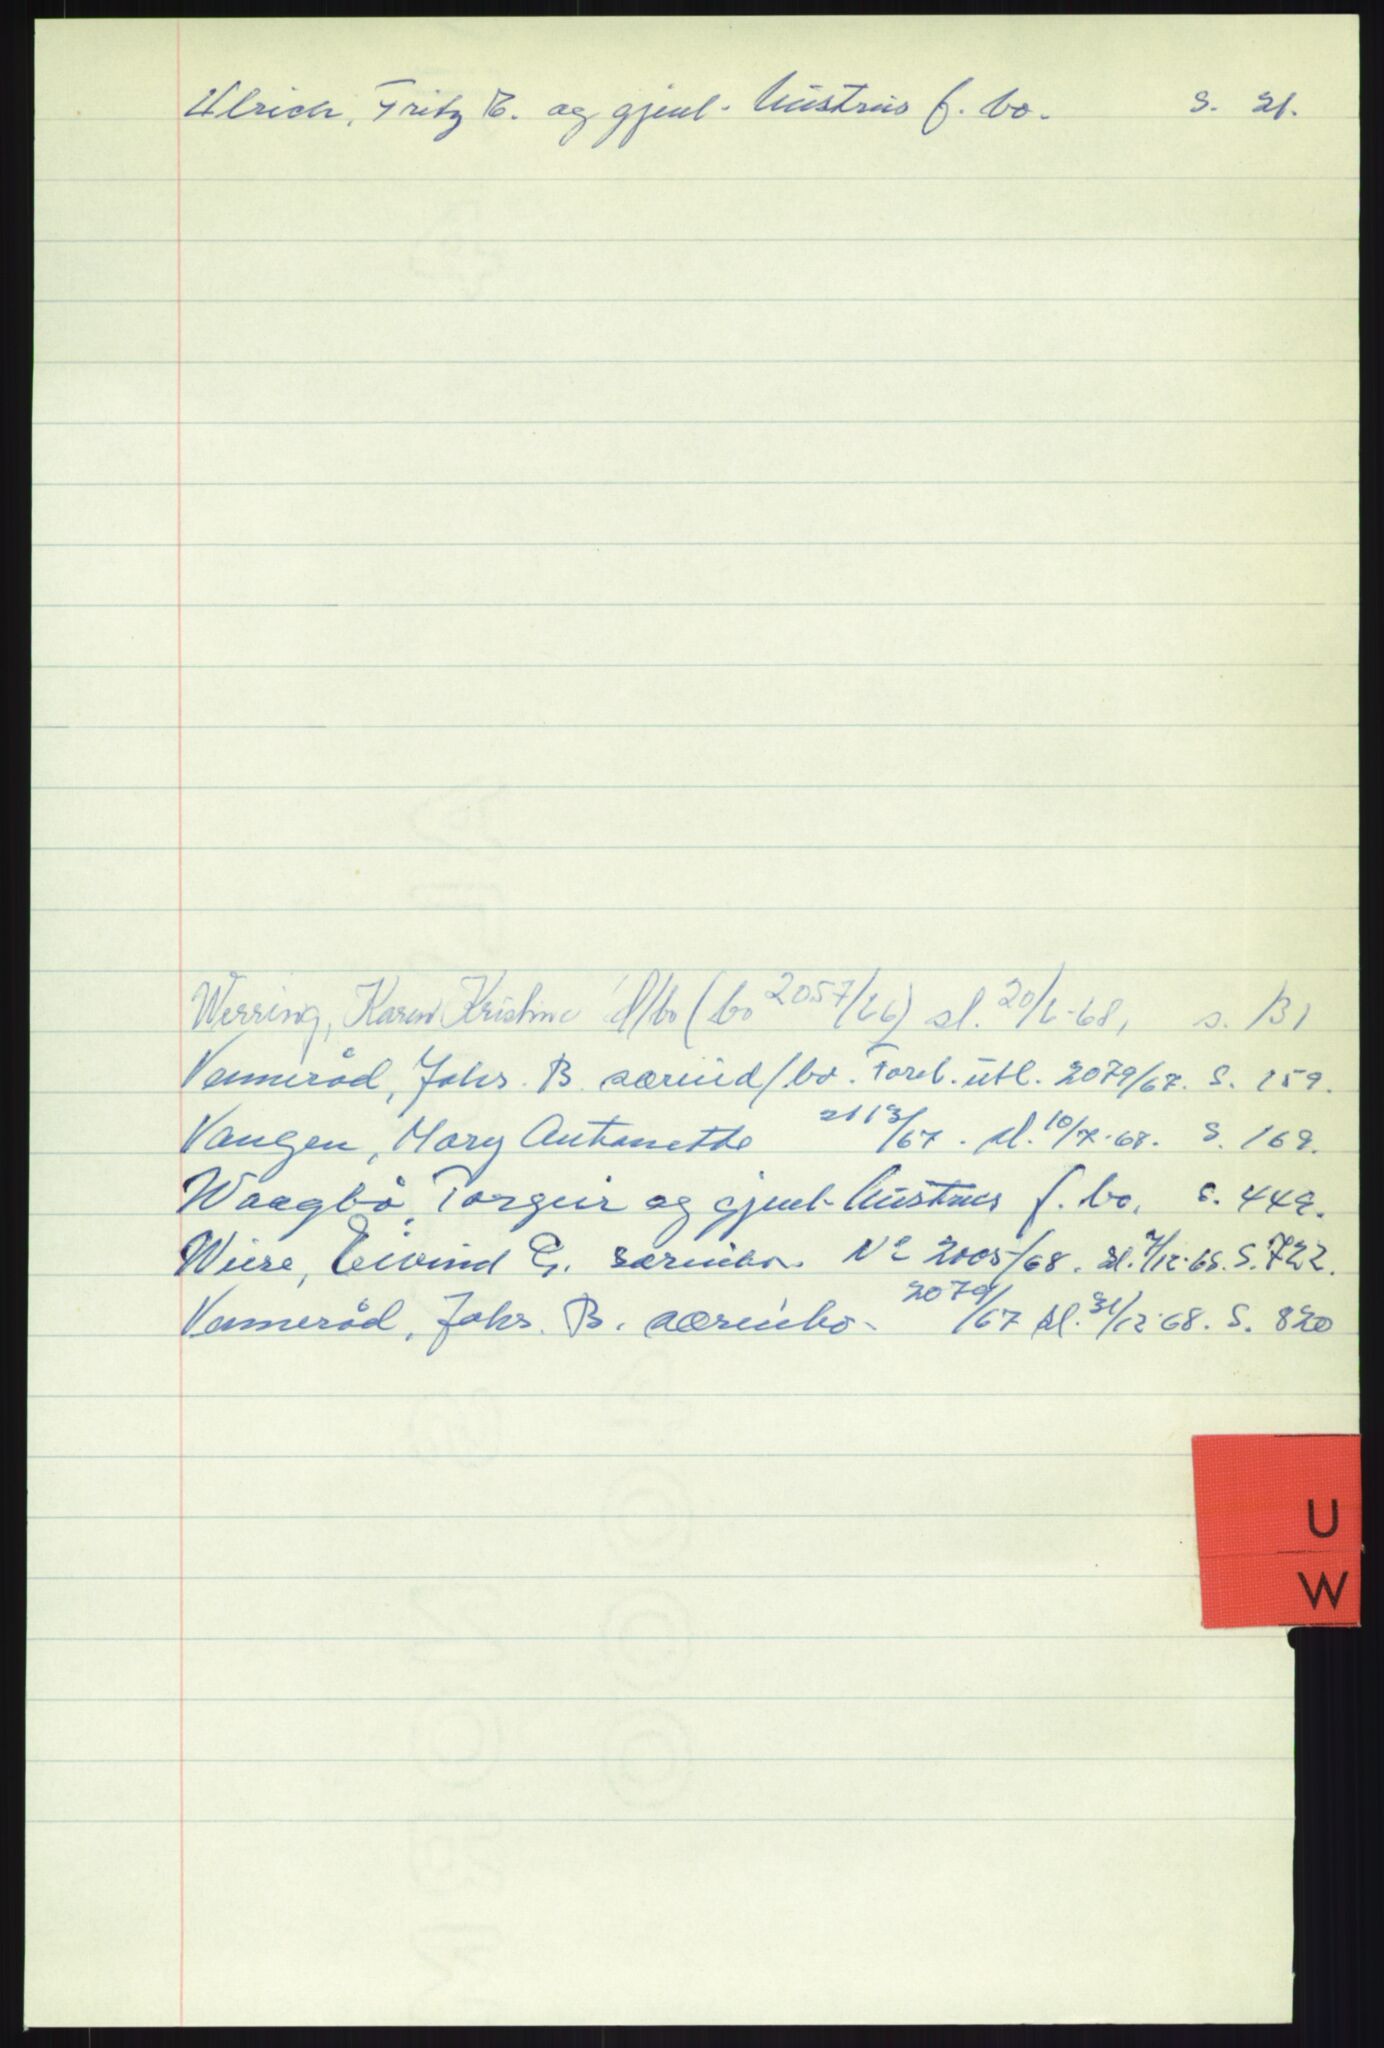 Ulrich, Fritz E. og gjenl. hustrus f. bo. S. 21.
Werring, Karen Kristine d/bo (bo 2057/66) sl. 20/6-68, s. 131
Vemmeråd, Johs. B. særeied/bo. Forel. utl. 2079/67. S. 159.
Vangen, Mary Antonette 2113/67. sl. 10/7-68. S. 169.
Waagbø, Torgeir og gjenl. hustrus f. bo. S. 449.
Wiese, Eivind G. særeiebo. No 2005/68. sl. 7/12-68. S. 722.
Vemmeråd, Johs. B. særeiebo. 2079/67 sl. 31/12-68. S. 820
U
W